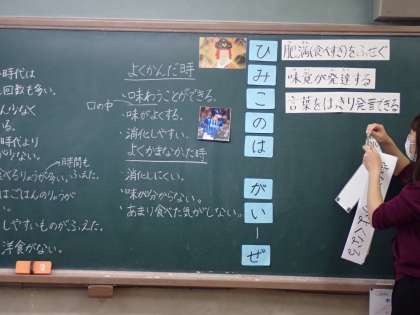 時代は
回数も多い。
少なく
る。
時代より
時間も
べるりょうが多い、ふえた。
はごはんのりょうが
しやすいものがふえた。
洋食がない。
よくかんだ時
口の中
・味わうことができる。
・味がよくする。
・消化しやすい。
よくかまなかった時
・消化しにくい。
・味が分からない。
・あまり食べた気がしない。
ひみこのはがいーぜ
肥満(食べすぎ)をふせぐ
味覚が発達する
言葉をはっきり発音できる